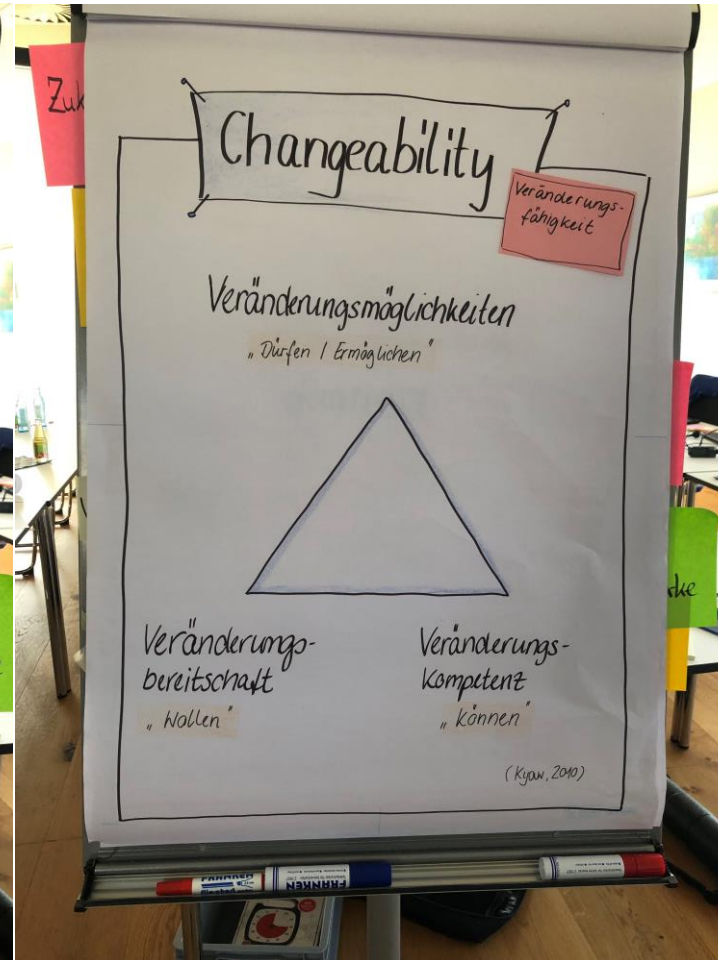 Zuk
Changeability
Veränderungs-
fähigkeit
Veränderungsmöglichkeiten
„Dürfen / Ermöglichen"
Veränderungs-
bereitschaft
„Wollen"
Veränderungs-
kompetenz
„können"
(Kyaw, 2010)
rke
FRANKEN
FRANKEN